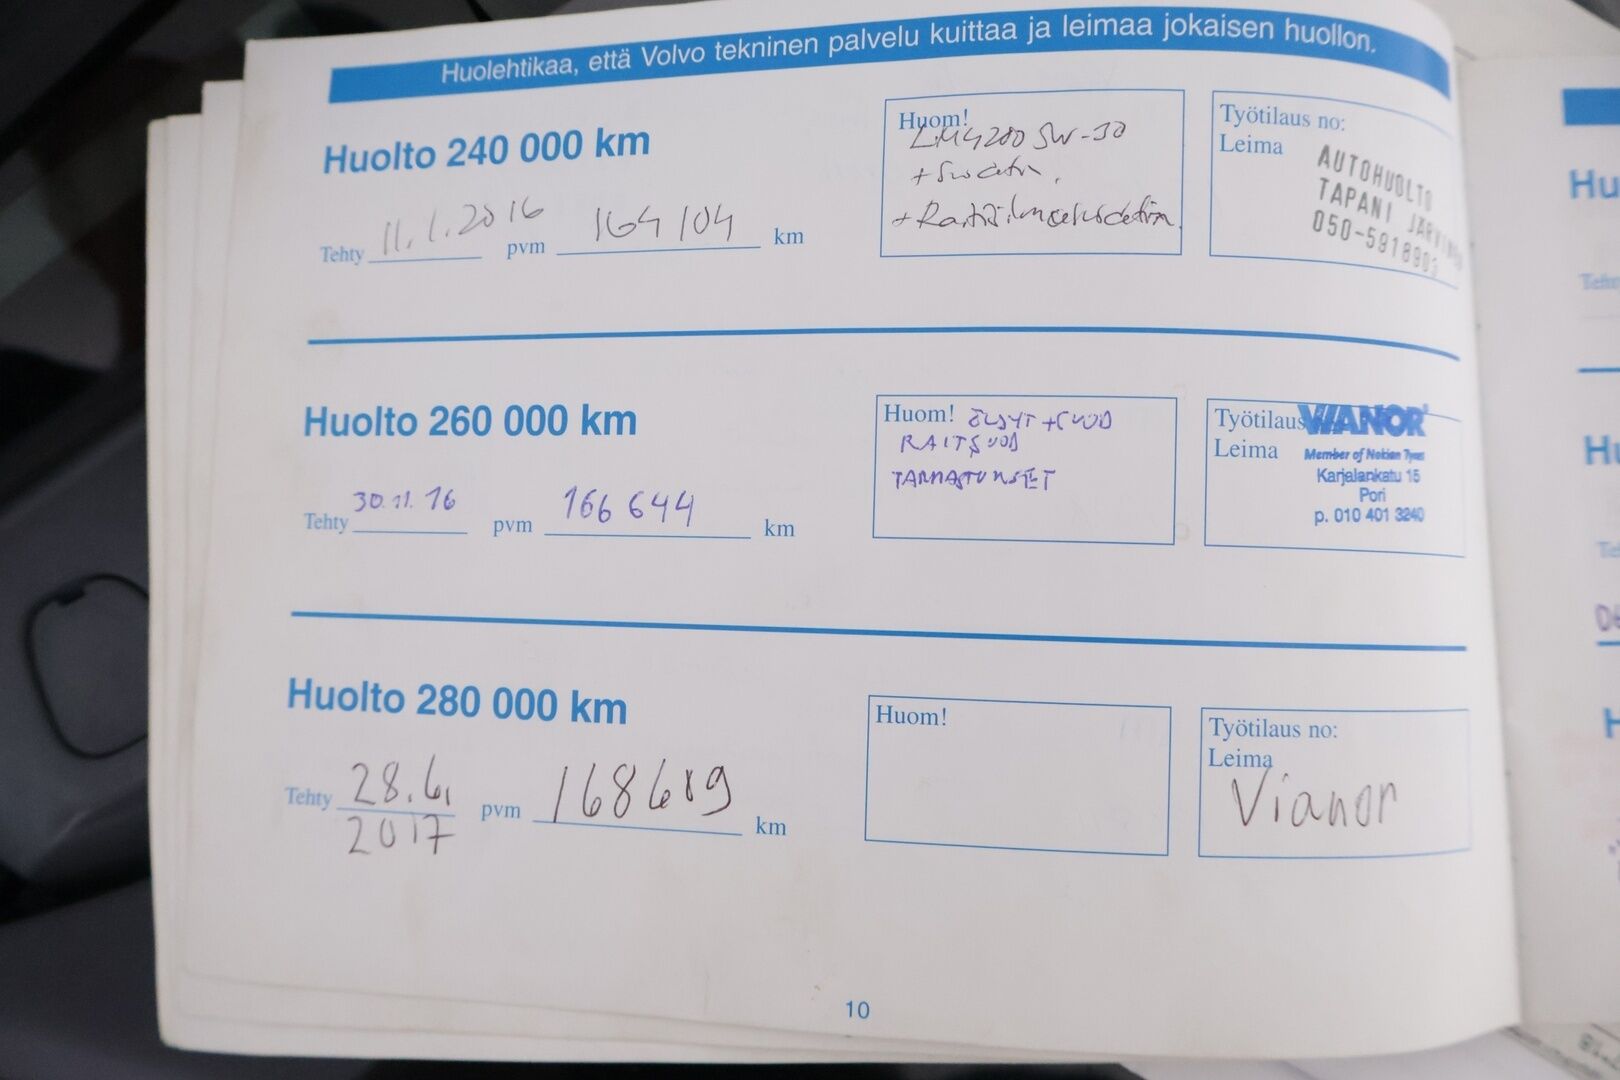 Huolehtikaa, että Volvo tekninen palvelu kuittaa ja leimaa jokaisen huollon.
Huolto 240 000 km
Tehty 11.1.2016 pvm 164104 km
Huom!
LM4200 5W-30
+
+ Raitisilmasuodatin
Työtilaus no:
Leima
AUTOHUOLTO
TAPANI
050-5918903
Huolto 260 000 km
Tehty 30.11.16 pvm 166 644 km
Huom! ÖLJYT + SUOD
RAITSUOD
TARKASTUKSET
Työtilaus
Leima
VIANOR
Member of Nokian Tyres
Karjalankatu 15
Pori
p. 010 401 3240
Huolto 280 000 km
Tehty 28.6. pvm 168689 km
2017
Huom!
Työtilaus no:
Leima
Vianor
10